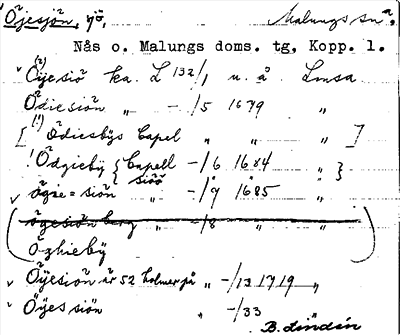 Öjesjön, sjö, Malungs sn.
Nås o. Malungs doms. tg, Kopp. l.
Öijesiö ka. L 132/1 u. å. Lmsa
Ödiesiön „ -/5 1679 „
[(!) Ödiesbÿs Capel „ „ „ ]
! Ödgieby { Capell siöö -/6 1684 „ }
ögie=siön „ -/9 1685 „
ögesiön berg „ -/8 „
Özhieby
Öÿesiön är 52 holmer på „ -/13 1719 „
Öÿes siön „ -/33
B. Lindén